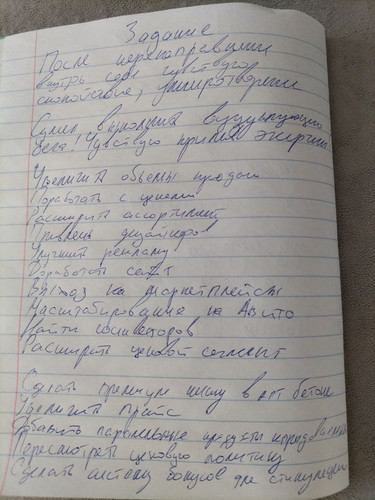 Задание
После перенаправления
внутрь себя чувствую
спокойствие, умиротворение
Сумел, выполнил
себя! Чувствую прилив энергии
Увеличить объемы продаж
Поработать с ценами
Расширить ассортимент
Привлечь дизайнеров
Улучшить рекламу
Доработать сайт
Выход на маркетплейсы
Масштабирование на Авито
Найти инвесторов
Расширить ценовой сегмент
Сделать премиум нишу в арт бетоне
Увеличить прайс
Добавить параллельные продукты
Пересмотреть ценовую политику
Сделать систему бонусов для